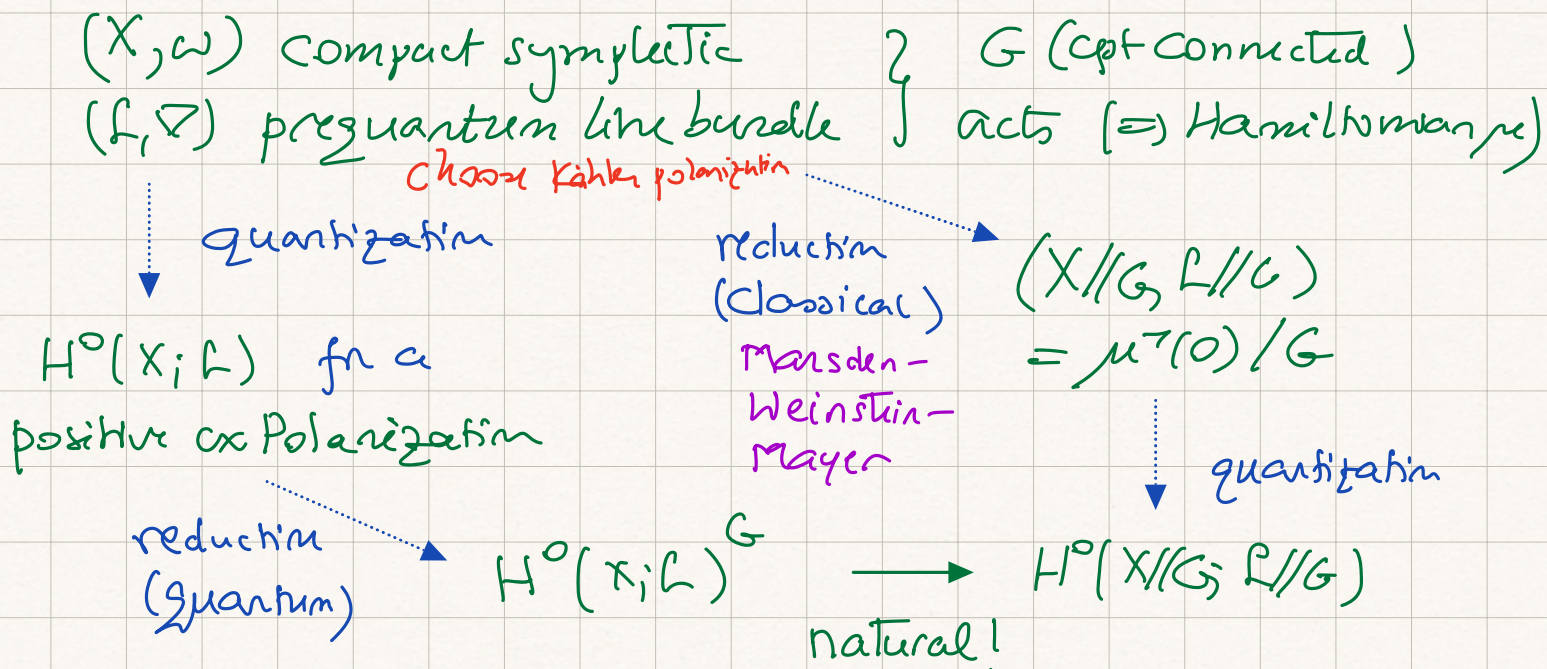 (X, ω) compact symplectic } G (cpt connected)
(L, ∇) prequantum line bundle } acts (⇒ Hamiltonian, μ)
Choose Kähler polarization
quantization
reduction
(classical)
Marsden-
Weinstein-
Mayer
(X//G, L//G)
= μ⁻¹(0)/G
H⁰(X; L) for a
positive cx Polarization
quantization
reduction
(quantum)
H⁰(X; L)^G → H⁰(X//G; L//G)
natural!